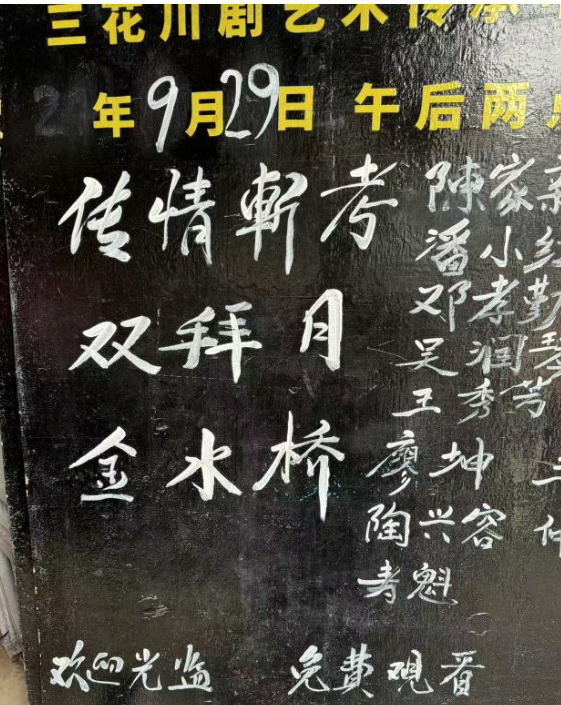 三花川剧艺术传承
年9月29日 午后两点
传情斬考 陳家
潘小红
邓孝勤
双拜月 吴润琴
王秀芳
金水桥 廖坤 王
陶兴容
寿魁
欢迎光监 免費观看